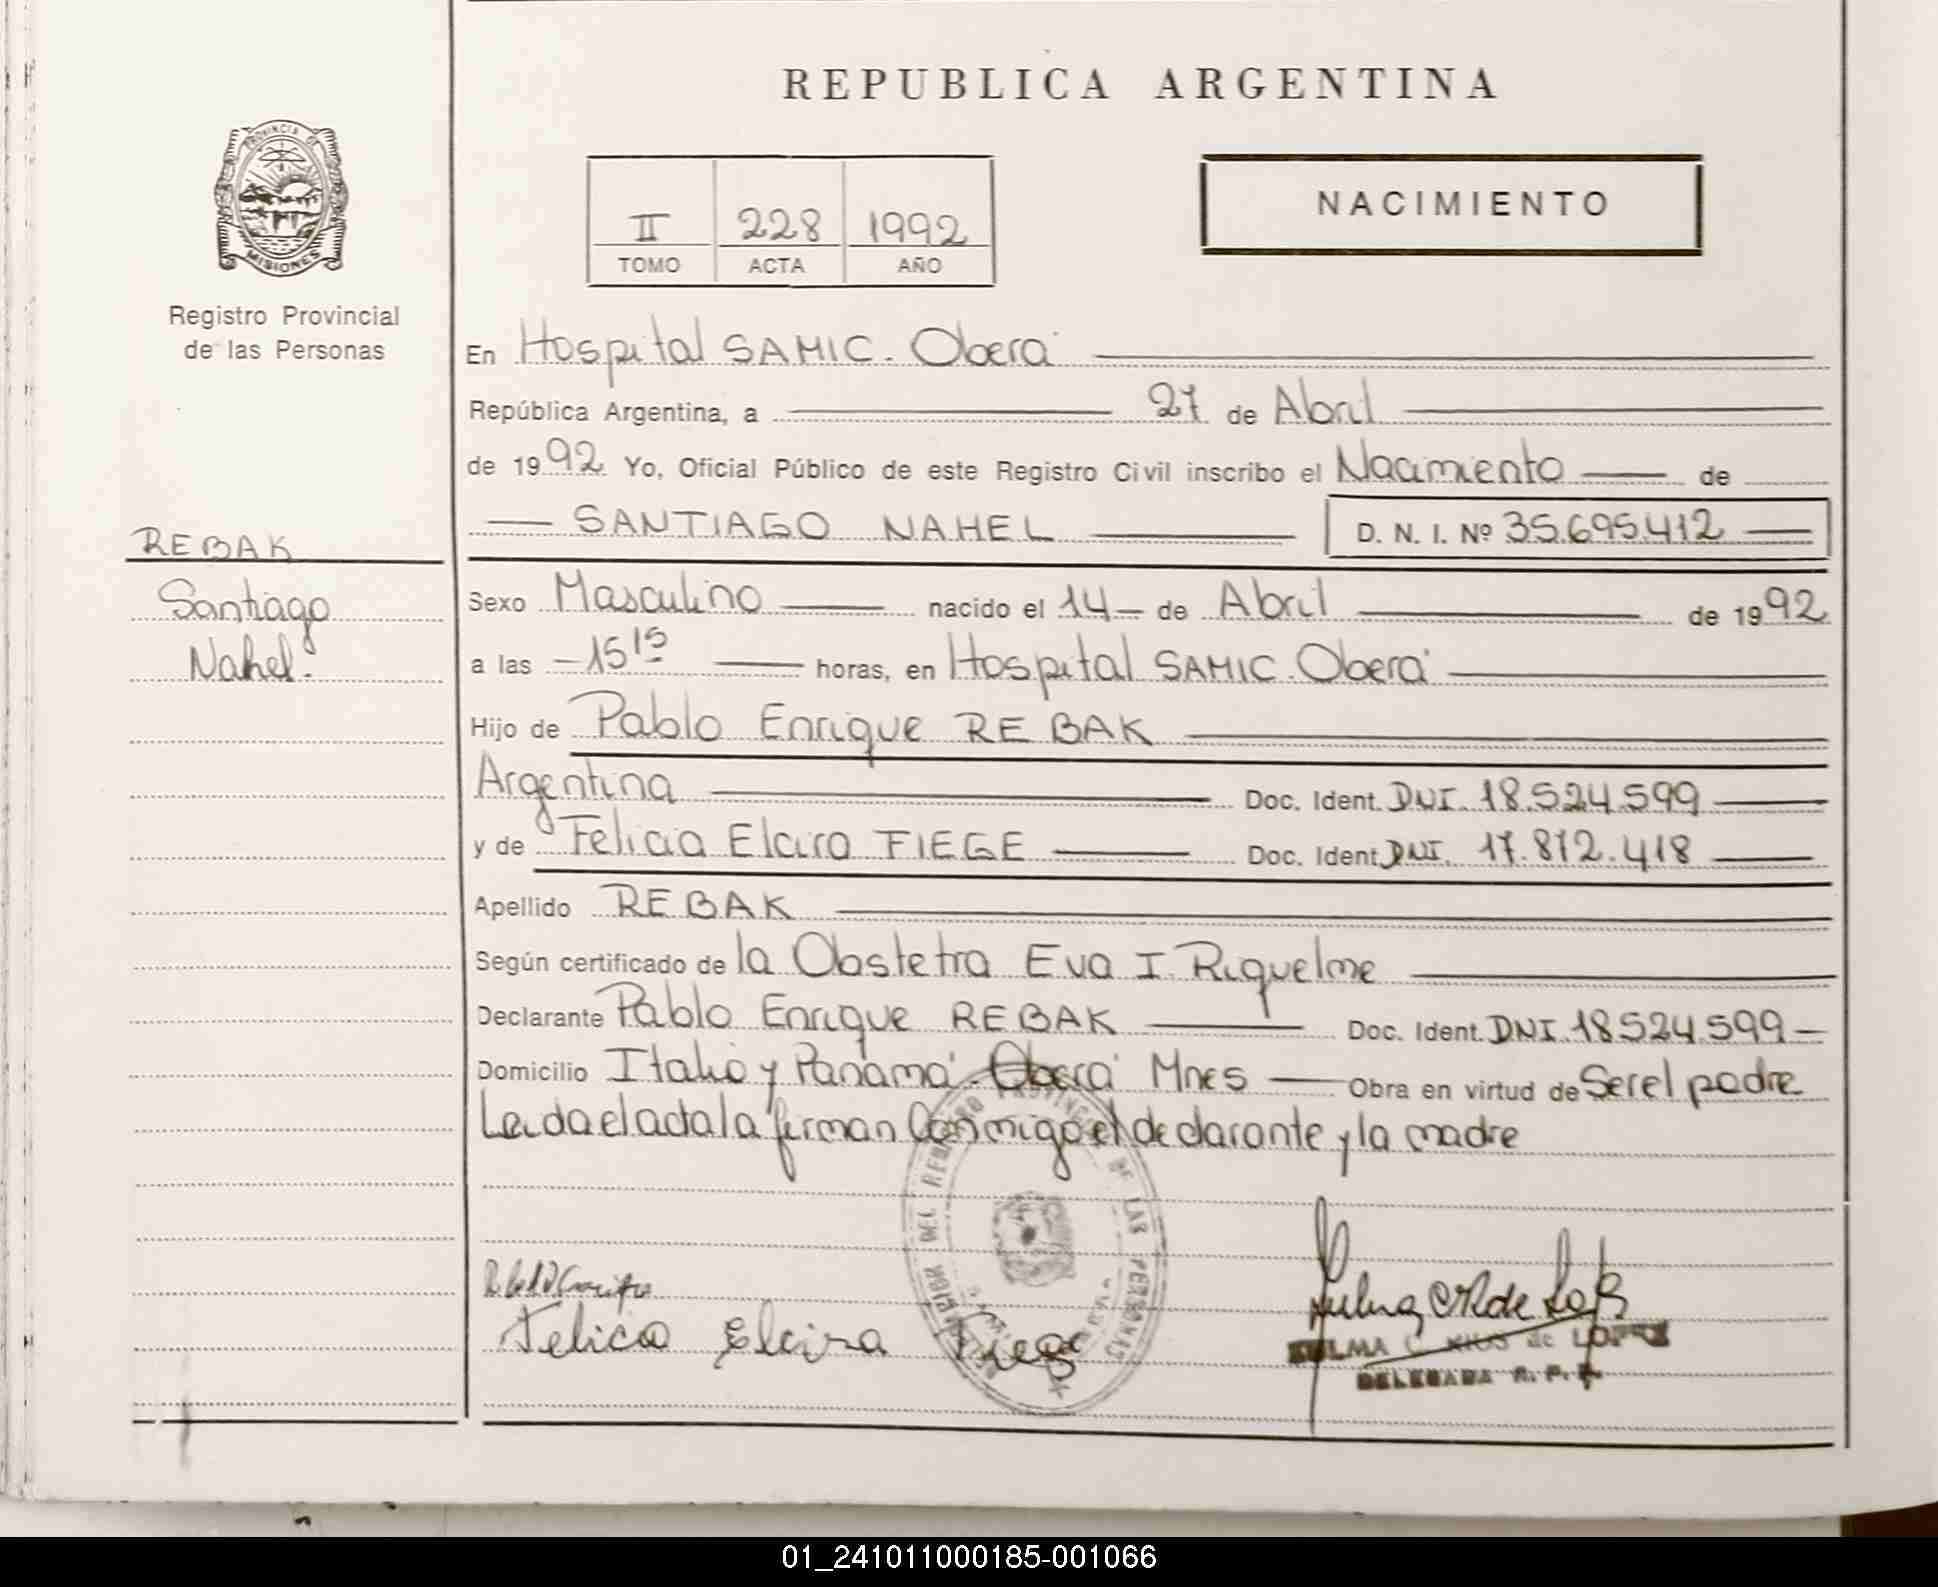 REPUBLICA ARGENTINA
PROVINCIA DE
MISIONES
Registro Provincial
de las Personas
II 228 1992
TOMO ACTA AÑO
NACIMIENTO
En Hospital SAMIC. Oberá
República Argentina, a 27 de Abril
de 1992 Yo, Oficial Público de este Registro Civil inscribo el Nacimiento de
SANTIAGO NAHEL D. N. I. Nº 35.695.412
REBAK
Santiago
Nahel.
Sexo Masculino nacido el 14 de Abril de 1992
a las 15 15 horas, en Hospital SAMIC. Oberá
Hijo de Pablo Enrique REBAK
Argentina Doc. Ident. DNI. 18.524.599
y de Felicia Elcira FIEGE Doc. Ident. DNI. 17.872.418
Apellido REBAK
Según certificado de la Obstetra Eva I. Riquelme
Declarante Pablo Enrique REBAK Doc. Ident. DNI. 18524.599
Domicilio Italia y Panamá. Oberá Mnes Obra en virtud de Ser el padre
Leida el acta la firman Conmigo el declarante y la madre
DEL REGISTRO PROVINCIAL DE LAS PERSONAS
Felicia Elcira Fiege
de LOPEZ
DELEGADA R. P. P.
01_241011000185-001066